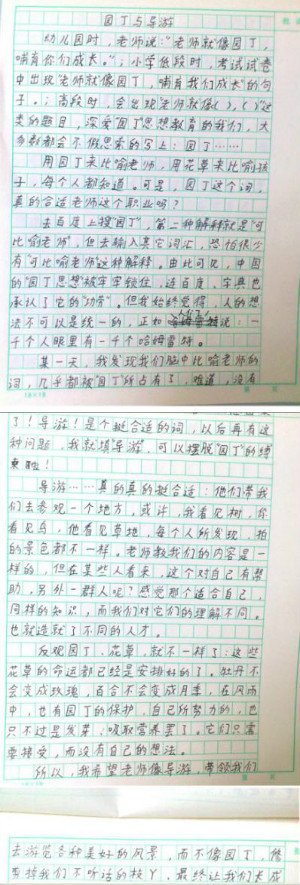 园丁与导游
幼儿园时，老师说："老师就像园丁，
哺育你们成长。"；小学低段时，考试试卷
中出现"老师就像园丁，哺育我们成长"的句
子。；高段时，会出现"老师就像( )，( )"这
类的题目，深受"园丁"思想教育的我们，大
多数都会不假思索的写上：园丁……
用园丁来比喻老师，用花草来比喻孩
子，每个人都知道。可是，园丁这个词，
真的合适老师这个职业吗？
去百度上搜"园丁"，第二种解释就是"可
比喻老师"，但去输入其它词汇，恐怕很少
有"可比喻老师"这种解释。由此可见，中国
的"园丁思想"被牢牢锁住，连百度、字典也
承认了它的"功劳"。但我始终觉得，人的想
法不可以是统一的，正如说：一
千个人眼里有一千个哈姆雷特。
某一天，我发现我们脑中比喻老师的
词，几乎都被"园丁"所占有了，难道，没有
了！导游！是个挺合适的词，以后再有这
种问题，我就填"导游"，可以摆脱"园丁"的缚
束啦！
导游……真的真的挺合适：他们带我
们去参观一个地方，或许，我看见树，你
看见鸟，他看见草地，每个人所发现、拍
的景色都不一样。老师教我们的内容是一
样的，但在某些人看来，这个对自己有帮
助，另外一群人呢？感觉那个适合自己，
同样的知识，而我们对它们的理解不同。
也就造就了不同的人才。
反观园丁、花草，就不一样了：这些
花草的命运都已经是安排好的了。牡丹不
会变成玫瑰，百合不会变成月季，在风雨
中，也有园丁的保护，自己所努力的，也
只不过是发芽、吸取营养罢了，它们只需
要接受，而没有自己的想法。
所以，我希望老师像导游，带领我们
去游览各种美好的风景，而不像园丁，修
剪掉我们不听话的枝丫，最终让我们长成